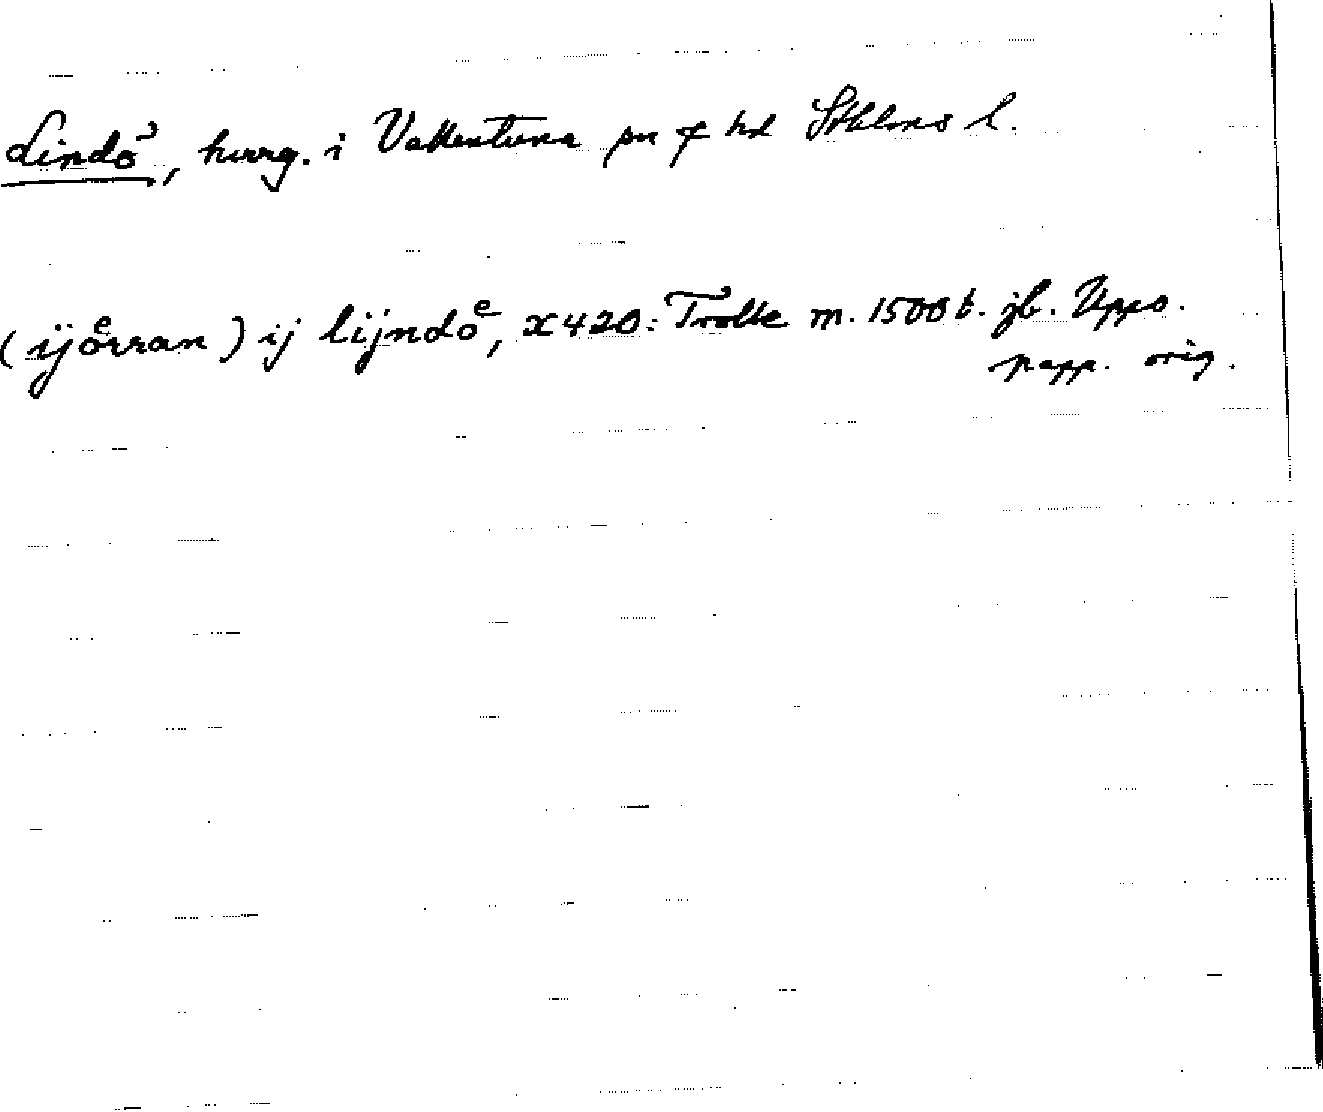 Lindö, herrg. i Vallentuna sn o hd Sthlms l.
(ijoͤrran) ij lijndoͤ, X 420: Trolle m. 1500 t. jb. Upps.
papp. orig.